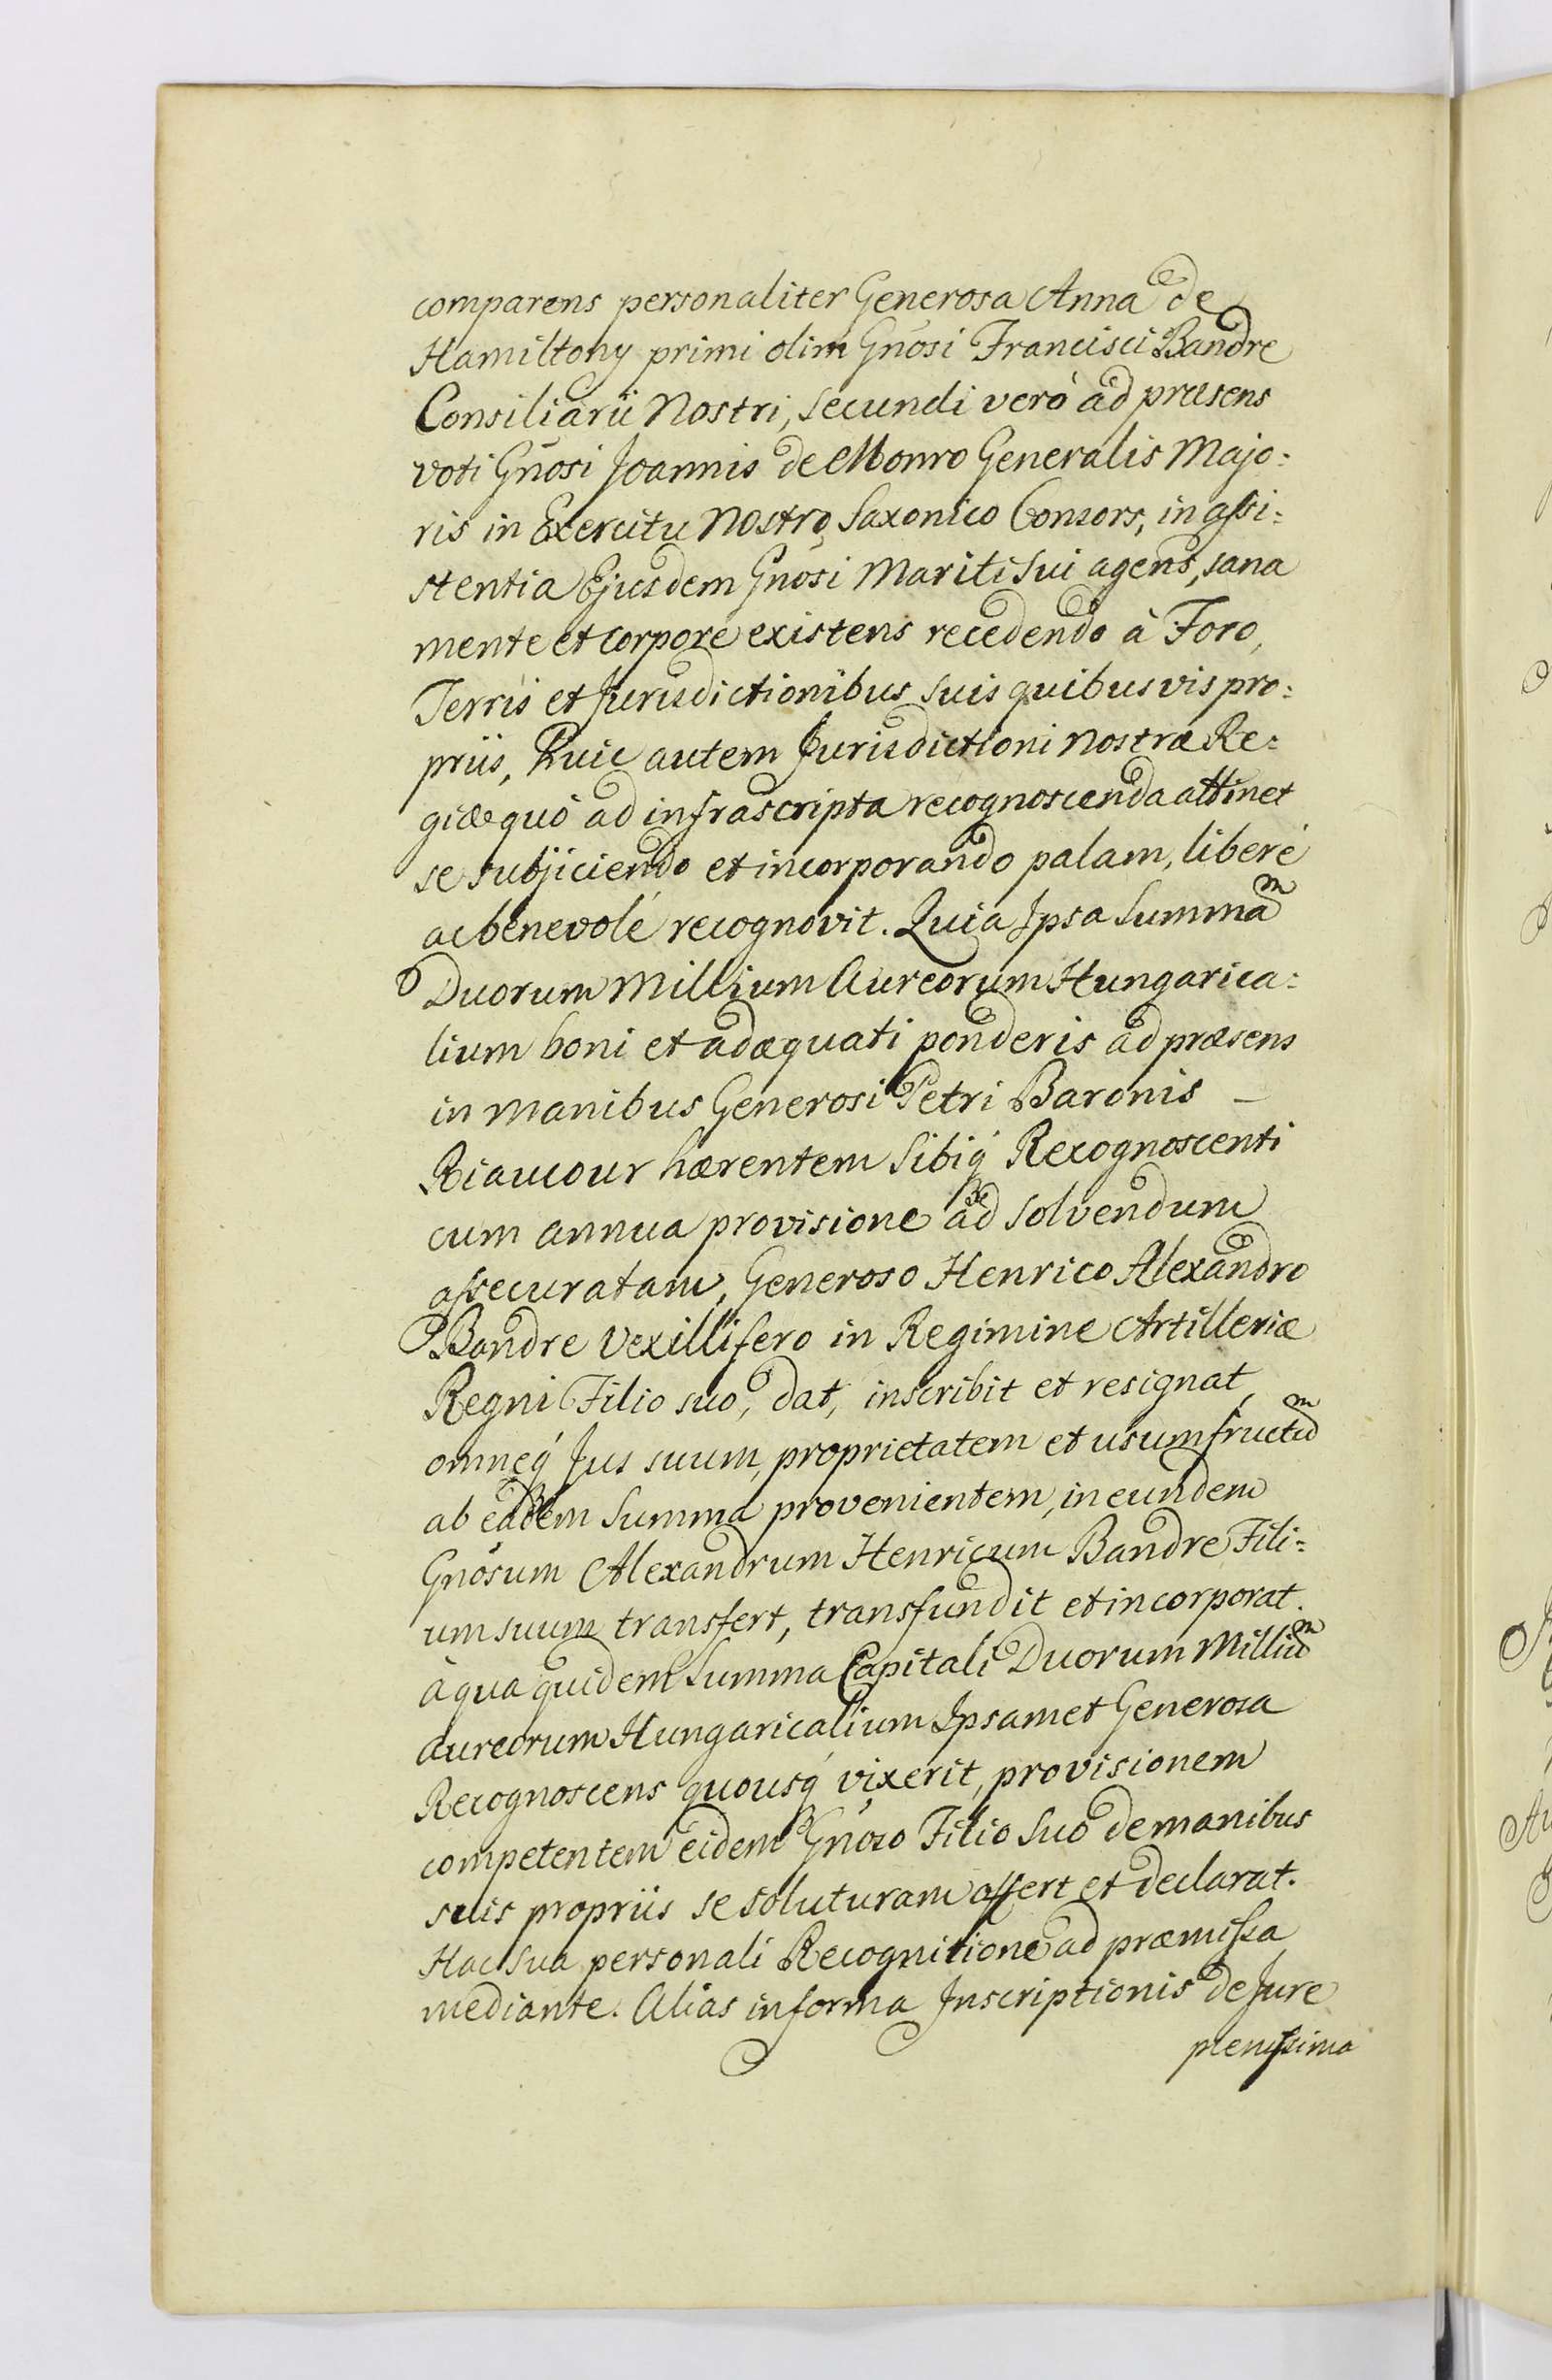 comparens personaliter Generosa Anna de
Hamiltony primi olim Gnõsi Francisci Bandre
Consiliarii Nostri, secundi verò ad præsens
voti Gnõsi Joannis de Monro Generalis Majo:
ris in Exercitu Nostro Saxonico Consors, in assi:
stentia Ejusdem Gnõsi Mariti Sui agens, sana
mente et corpore existens recedendo à Foro,
Terris et Jurisdictionibus suis quibusvis pro:
priis, huic autem Jurisdictioni nostræ Re:
giæ quò ad infrascripta recognoscenda attinet
se subjiciendo et incorporando palam, liberé
ac benevolé recognovit. Quia Ipsa Summam
Duorum Millium Aureorum Hungarica:
lium boni et adæquati ponderis ad præsens
in manibus Generosi Petri Baronis _
Riaucour hærentem Sibiq́ Recognoscenti
cum annua provisione ad solvendum
assecuratam, Generoso Henrico Alexandro
Bandre Vexillifero in Regimine Artilleriæ
Regni Filio suo, dat, inscribit et resignat,
omneq́ Jus suum, proprietatem et usumfructum
ab eadem Summa provenientem, in eundem
Gnõsum Alexandrum Henricum Bandre Fili:
um suum transfert, transfundit et incorporat.
à qua quidem Summa Capitali Duorum Millium
aureorum Hungaricalium Ipsamet Generosa
Recognoscens quousq́ vixerit, provisionem
competentem eidem Gnõso Filio Suo de manibus
suis propriis se soluturam offert et declarat.
Hac sua personali Recognitione ad præmissa
mediante. Alias in forma Inscriptionis de Jure
plenissima